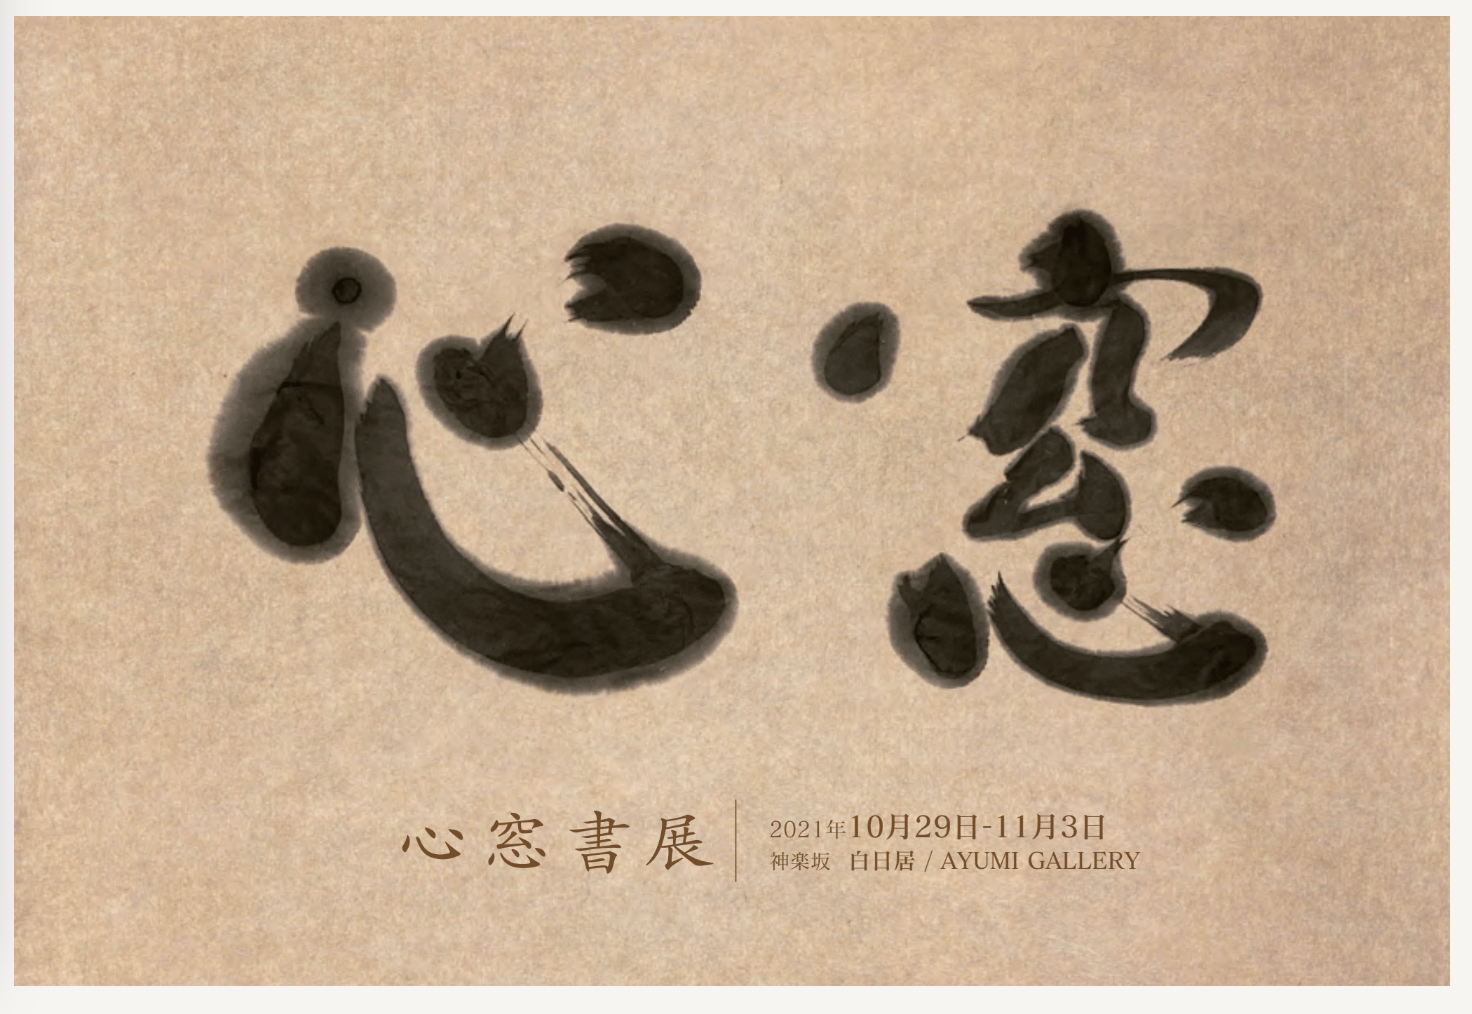 心窓
心窓書展
2021年10月29日-11月3日
神楽坂 白日居 / AYUMI GALLERY